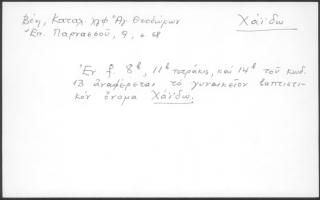 Βέη, Καταλ. χφ Ἁγ. Θεοδώρων
Χάϊδω
Ἐπ. Παρνασσοῦ, 9, σ 68
Ἐν f. 8b, 11b τετράκις, καὶ 14b τοῦ κωδ.
13 ἀναφέρεται τὸ γυναικεῖον βαπτιστι-
κὸν ὄνομα Χάϊδω.